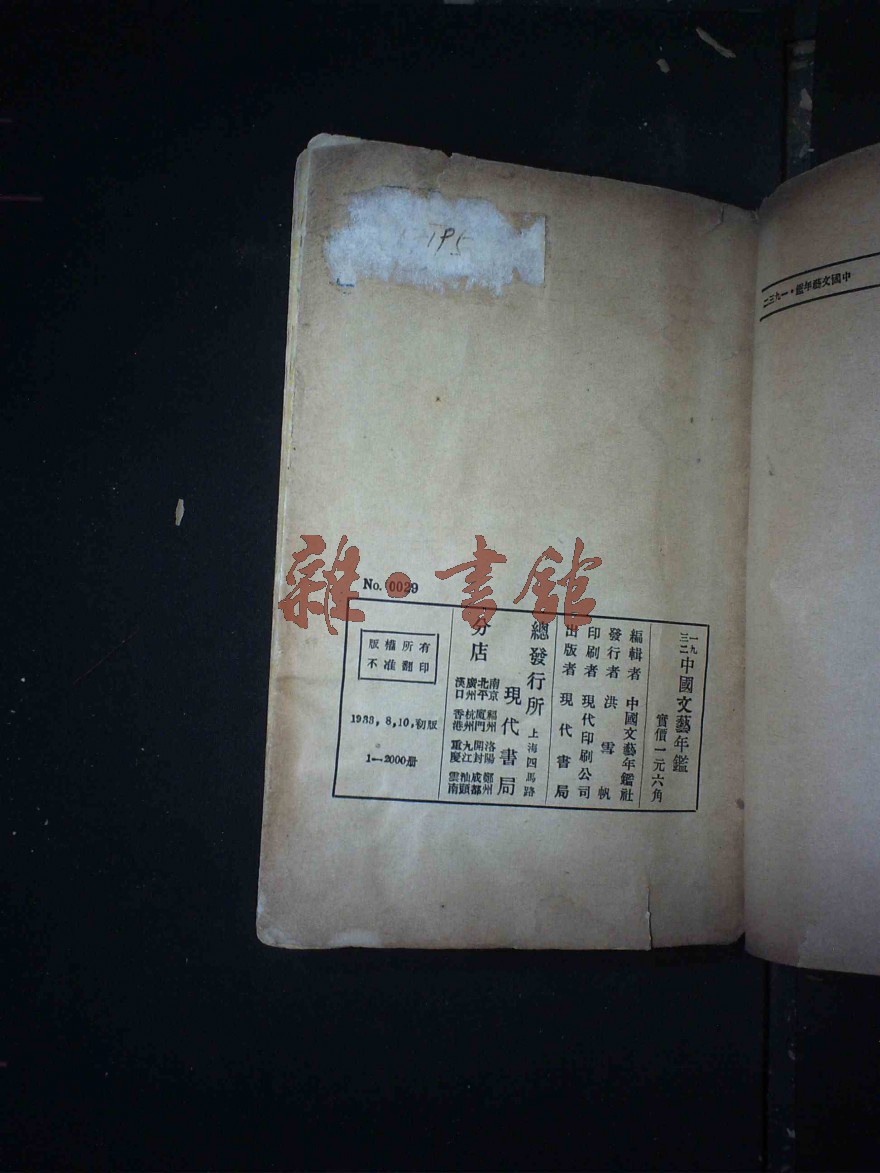 中國文藝年鑑・一九三二
195
No. 0029
一九三二中國文藝年鑑
實價一元六角
編輯者 中國文藝年鑑社
發行者 洪雪帆
印刷者 現代印刷公司
出版者 現代書局
總發行所 上海四馬路
現代書局
分店
南京 北平 廣州 漢口
福州 廈門 杭州 香港
洛陽 開封 九江 重慶
鄭州 成都 汕頭 雲南
版權所有
不准翻印
1933, 8, 10, 初版
1—2000册
雜・書館